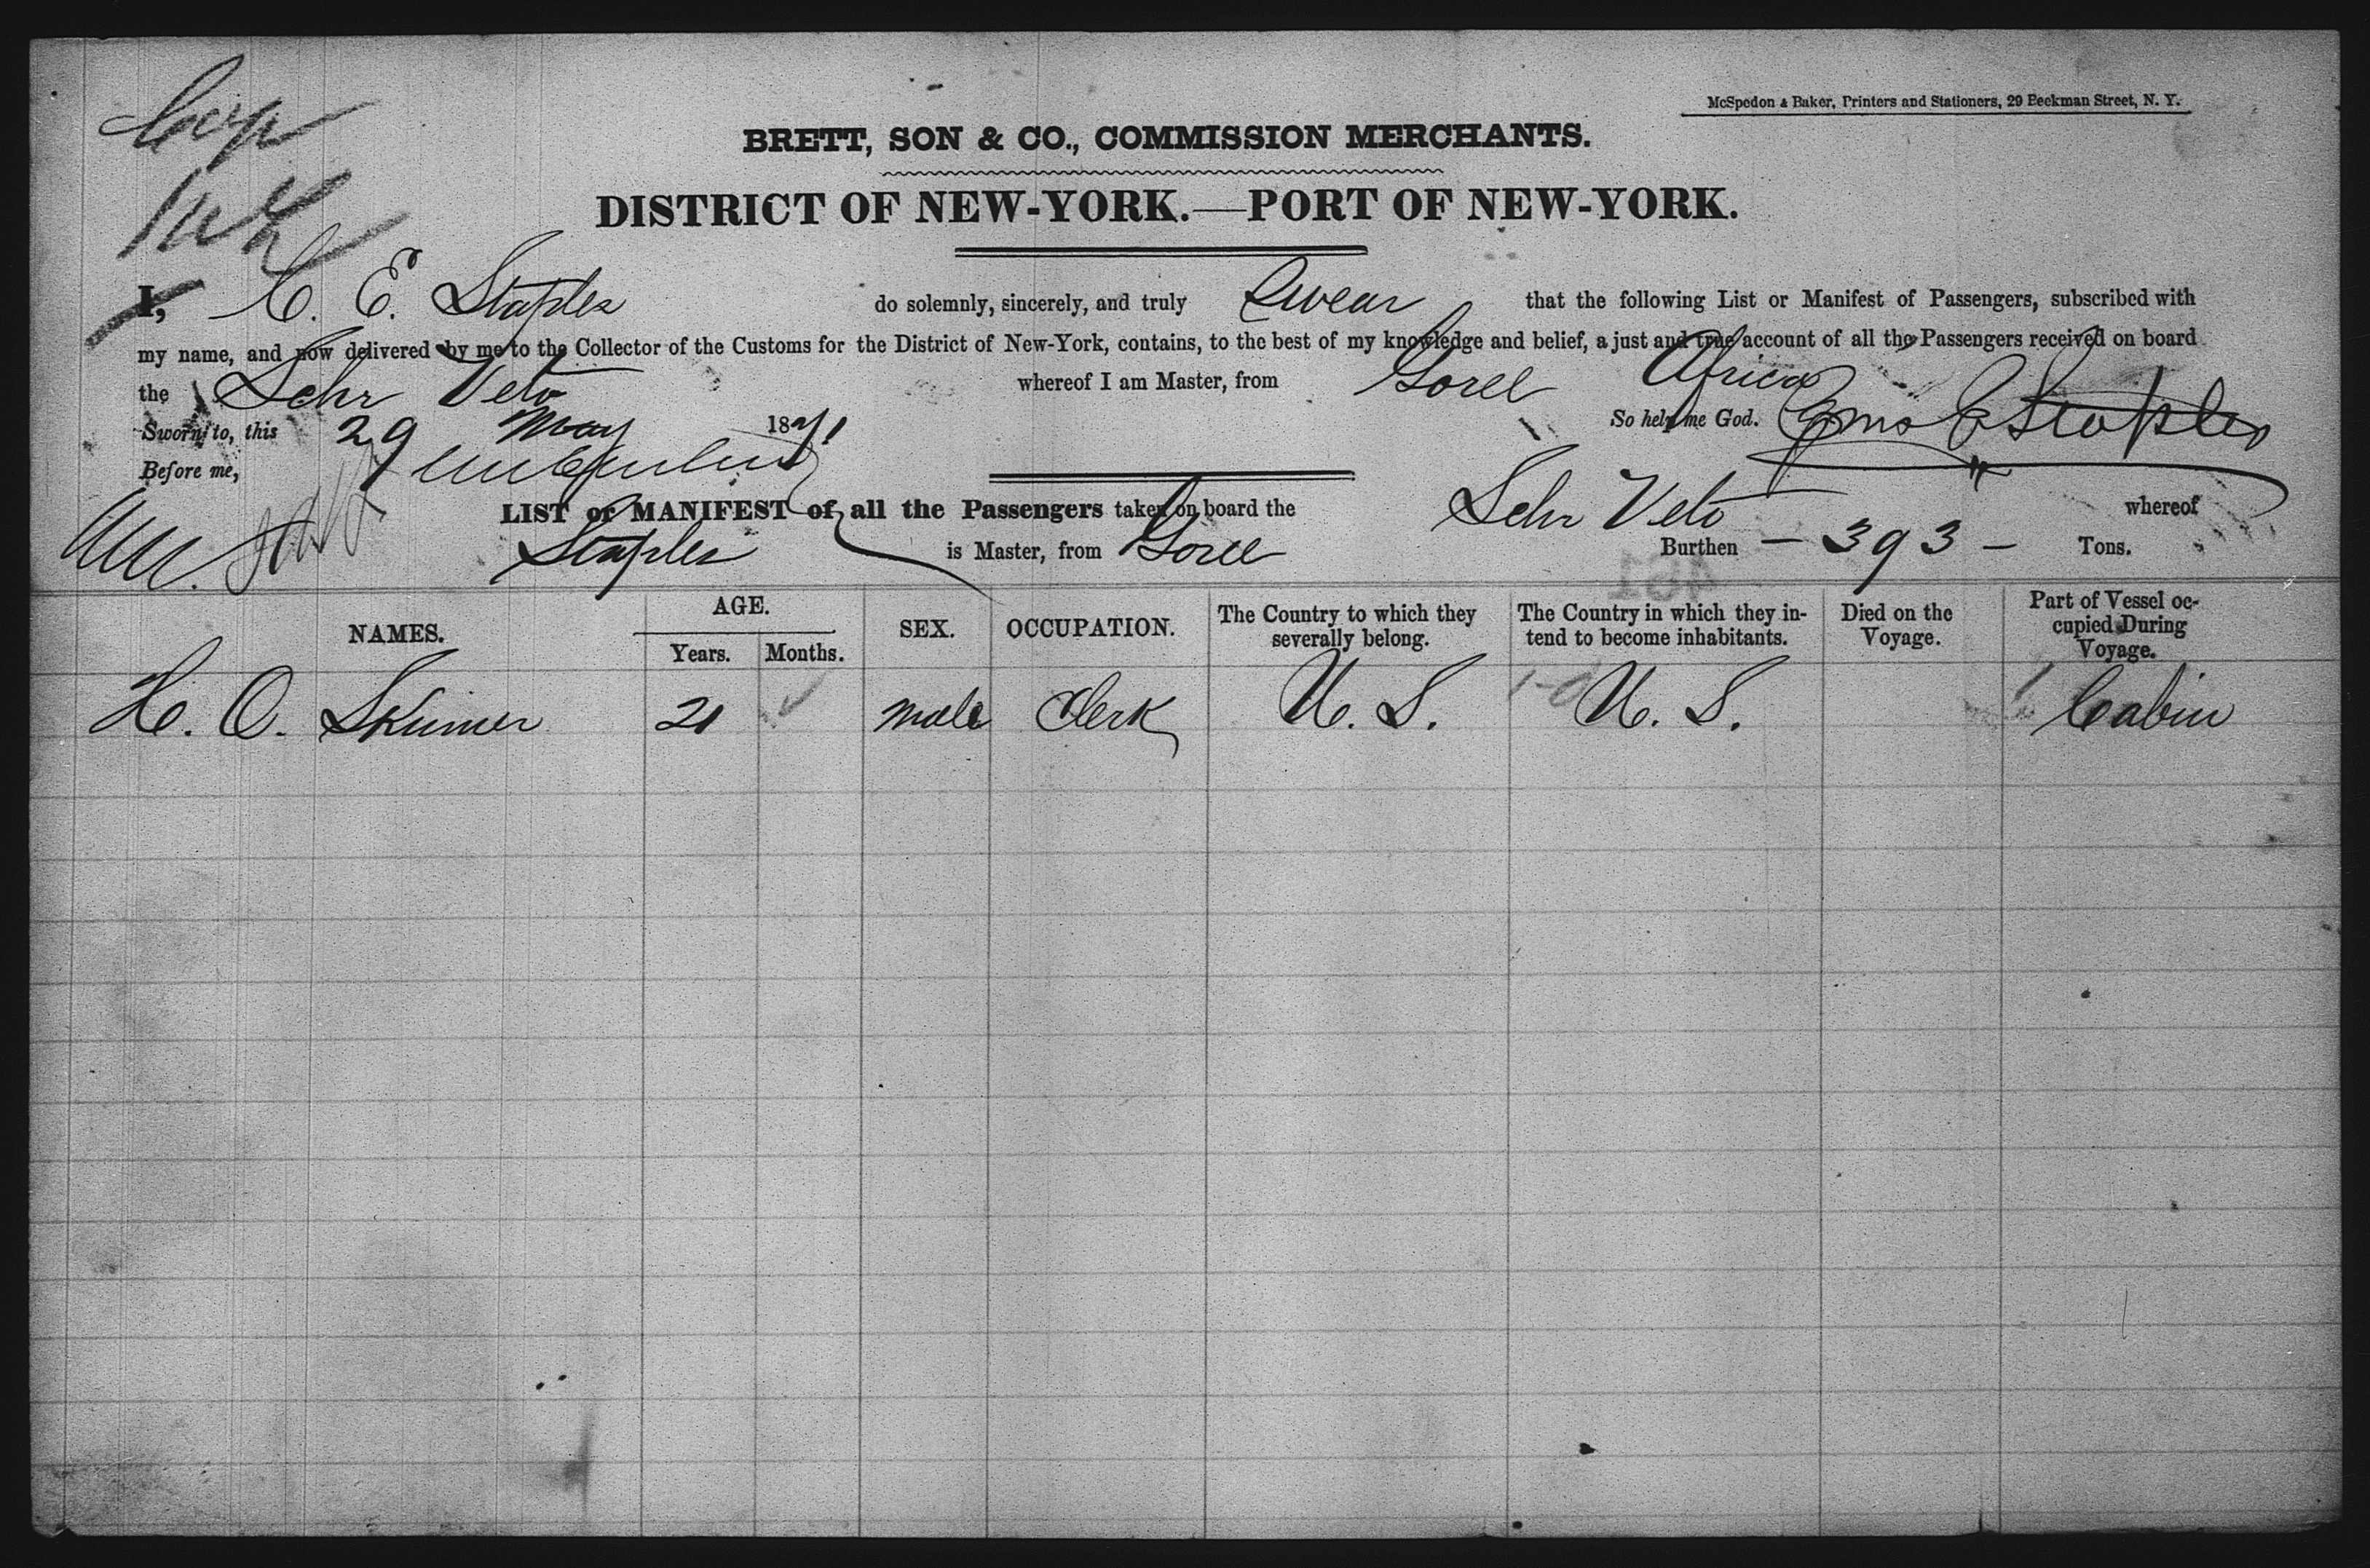 McSpedon & Baker, Printers and Stationers, 29 Beekman Street, N. Y.
BRETT, SON & CO., COMMISSION MERCHANTS.
DISTRICT OF NEW-YORK.—PORT OF NEW-YORK.
I, C. E. Staples do solemnly, sincerely, and truly Swear that the following List or Manifest of Passengers, subscribed with
my name, and now delivered by me to the Collector of the Customs for the District of New-York, contains, to the best of my knowledge and belief, a just and true account of all the Passengers received on board
the Schr Veto whereof I am Master, from Goree Africa
Sworn to, this 29 May 1871 So help me God. E Staples
Before me,
LIST or MANIFEST of all the Passengers taken on board the Schr Veto whereof
Staples is Master, from Goree Burthen — 393 — Tons.
NAMES. AGE. Years. Months. SEX. OCCUPATION. The Country to which they severally belong. The Country in which they intend to become inhabitants. Died on the Voyage. Part of Vessel occupied During Voyage.
H. O. Skinner 21 male Clerk U. S. U. S. Cabin